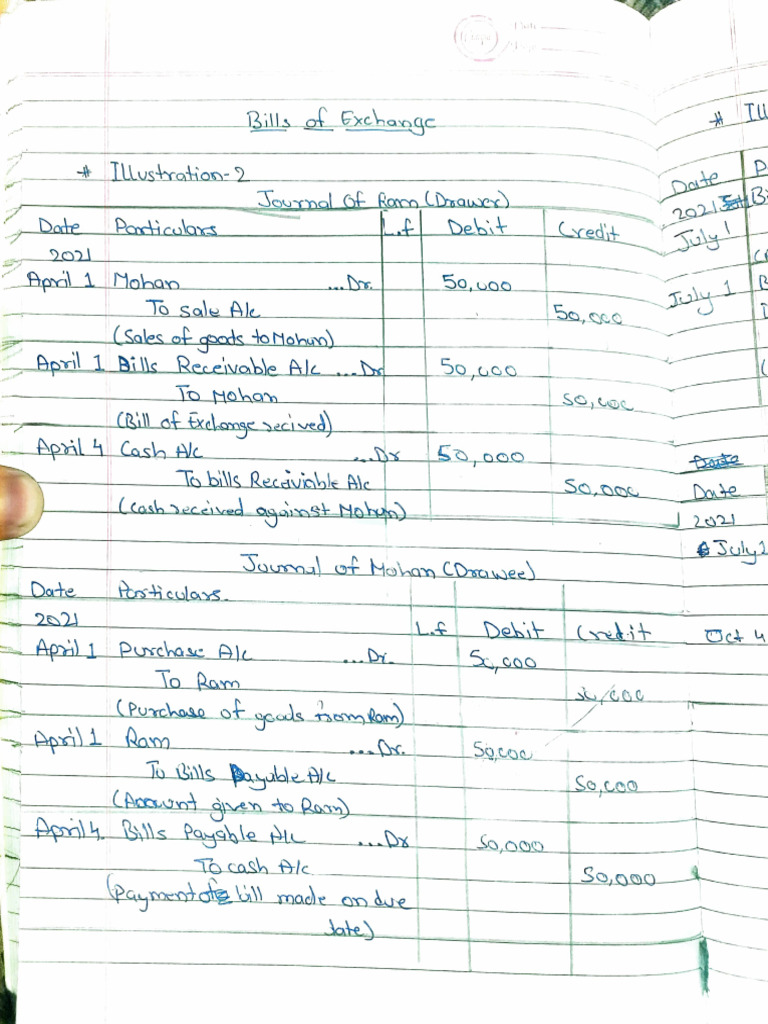 Bills of Exchange
* Illustration-2
Journal Of Ram (Drawer)
Date Particulars L.f Debit Credit
2021
April 1 Mohan ...Dr. 50,000
To sale A/c 50,000
(Sales of goods to Mohun)
April 1 Bills Receivable A/c ...Dr 50,000
To Mohan 50,000
(Bill of Exchange recived)
April 4 Cash A/c ...Dr 50,000
To bills Receiviable A/c 50,000
(cash received against Mohun)
Journal of Mohan (Drawee)
Date Particulars.
2021 L.f Debit Credit
April 1 Purchase A/c ...Dr. 50,000
To Ram 50,000
(Purchase of goods from Ram)
April 1 Ram ...Dr. 50,000
To Bills Payable A/c 50,000
(Account given to Ram)
April 4. Bills Payable A/c ...Dr 50,000
To cash A/c 50,000
(Payment of bill made on due
date)
* Ill
Date
2021
July 1
July 1
Date
2021
July 1
Oct 4